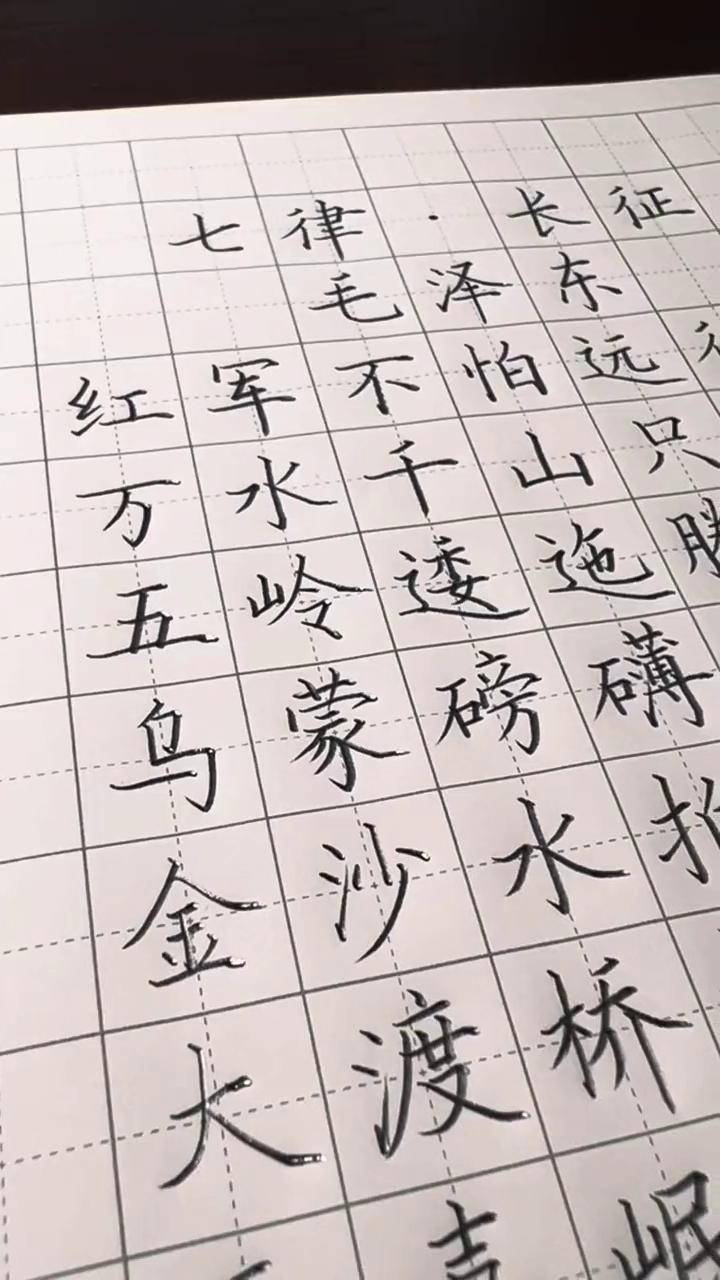 七律·长征
毛泽东
红军不怕远
万水千山只
五岭逶迤腾
乌蒙磅礴
金沙水拍
大渡桥
喜岷